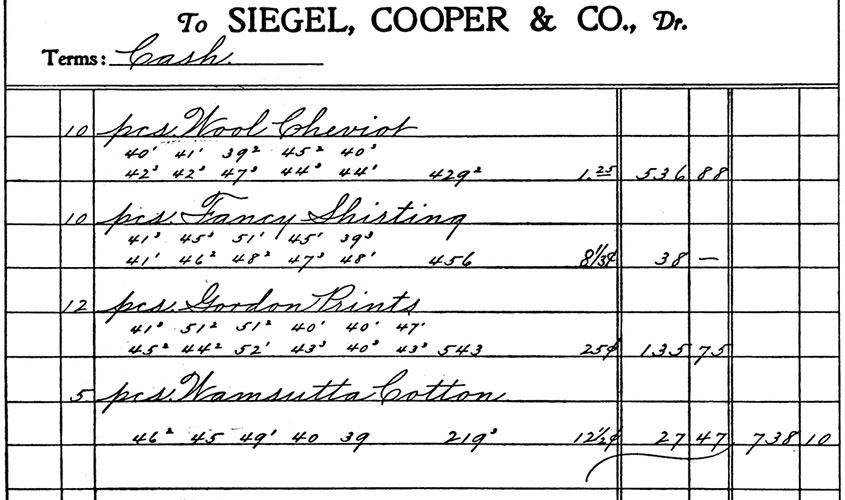 To SIEGEL, COOPER & CO., Dr.
Terms: Cash.
10 pcs. Wool Cheviot
40¹ 41¹ 39² 45² 40³
42³ 42³ 47³ 44³ 44¹ 429² 1.25 536 88
10 pcs. Fancy Shirting
41³ 45³ 51¹ 45¹ 39³
41¹ 46² 48² 47³ 48¹ 456 8⅓¢ 38 —
12 pcs. Gordon Prints
41³ 51² 51² 40¹ 40¹ 47¹
45² 44² 52¹ 43³ 40³ 43³ 543 25¢ 135 75
5 pcs. Wamsutta Cotton
46² 45 49¹ 40 39 219³ 12½¢ 27 47 738 10